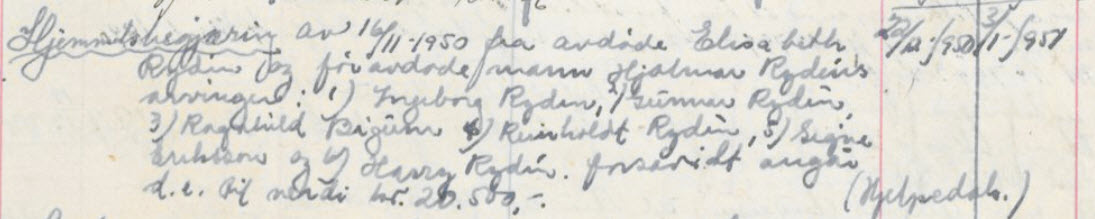 Hjemmelsbegjæring av 16/11-1950 fra avdøde Elisabeth 22/12-1950 3/1-1951
Rydin og føravdøde mann Hjalmar Rydin's
arvinger: 1) Ingeborg Rydin, 2) Gunnar Rydin,
3) Ragnhild 4) Reinholdt Rydin, 5) Signe
Eriksson og 6) Harry Rydin. forsåvidt angår
d.e. til verdi kr. 20.500,-. (Hjelpedok.)